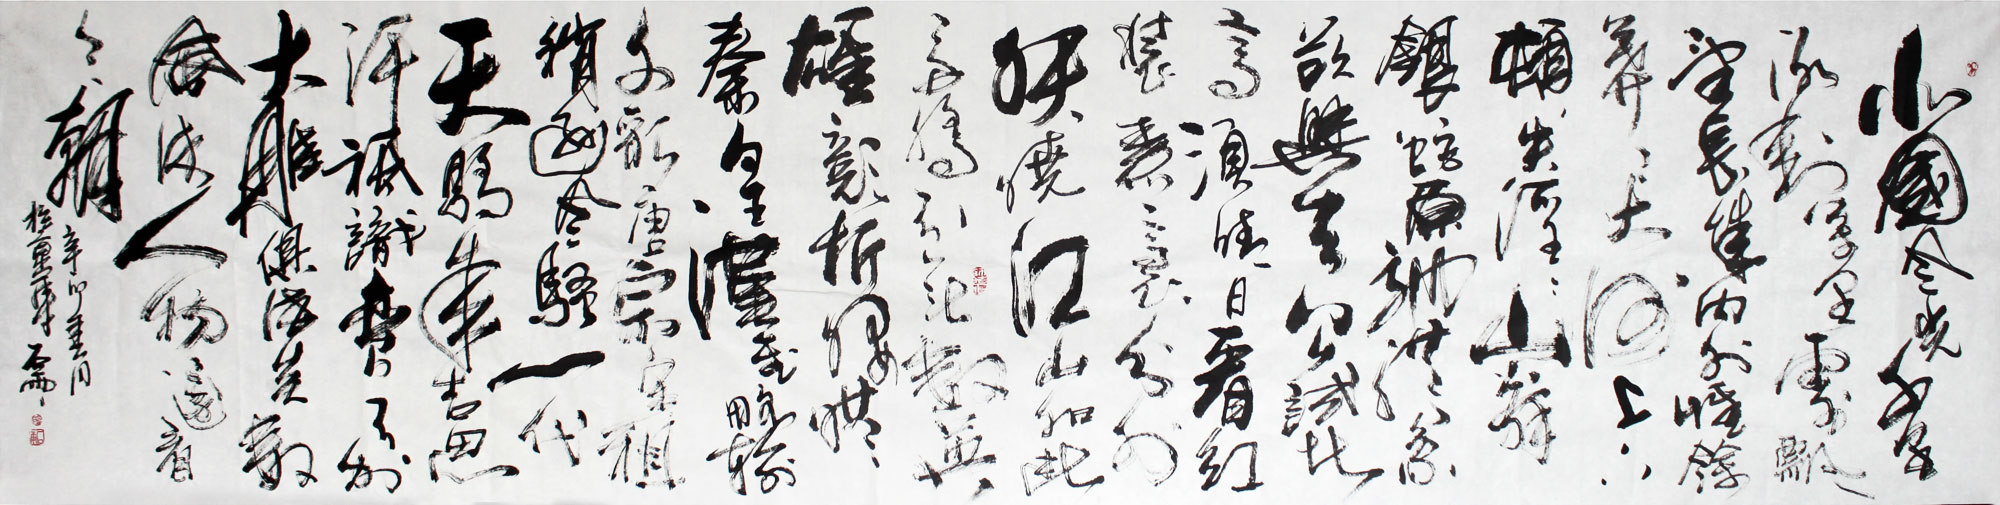 北國風光千里
冰封萬里雪飄
望長城內外惟餘
莽莽大河上下
頓失滔滔山舞
銀蛇原馳蠟象
欲與天公試比
高須晴日看紅
裝素裹分外
妖嬈江山如此
多嬌引無數英
雄競折腰惜
秦皇漢武略輸
文采唐宗宋祖
稍遜風騷一代
天驕成吉思
汗祇識彎弓射
大雕俱往矣數
風流人物還看
今朝
辛卯